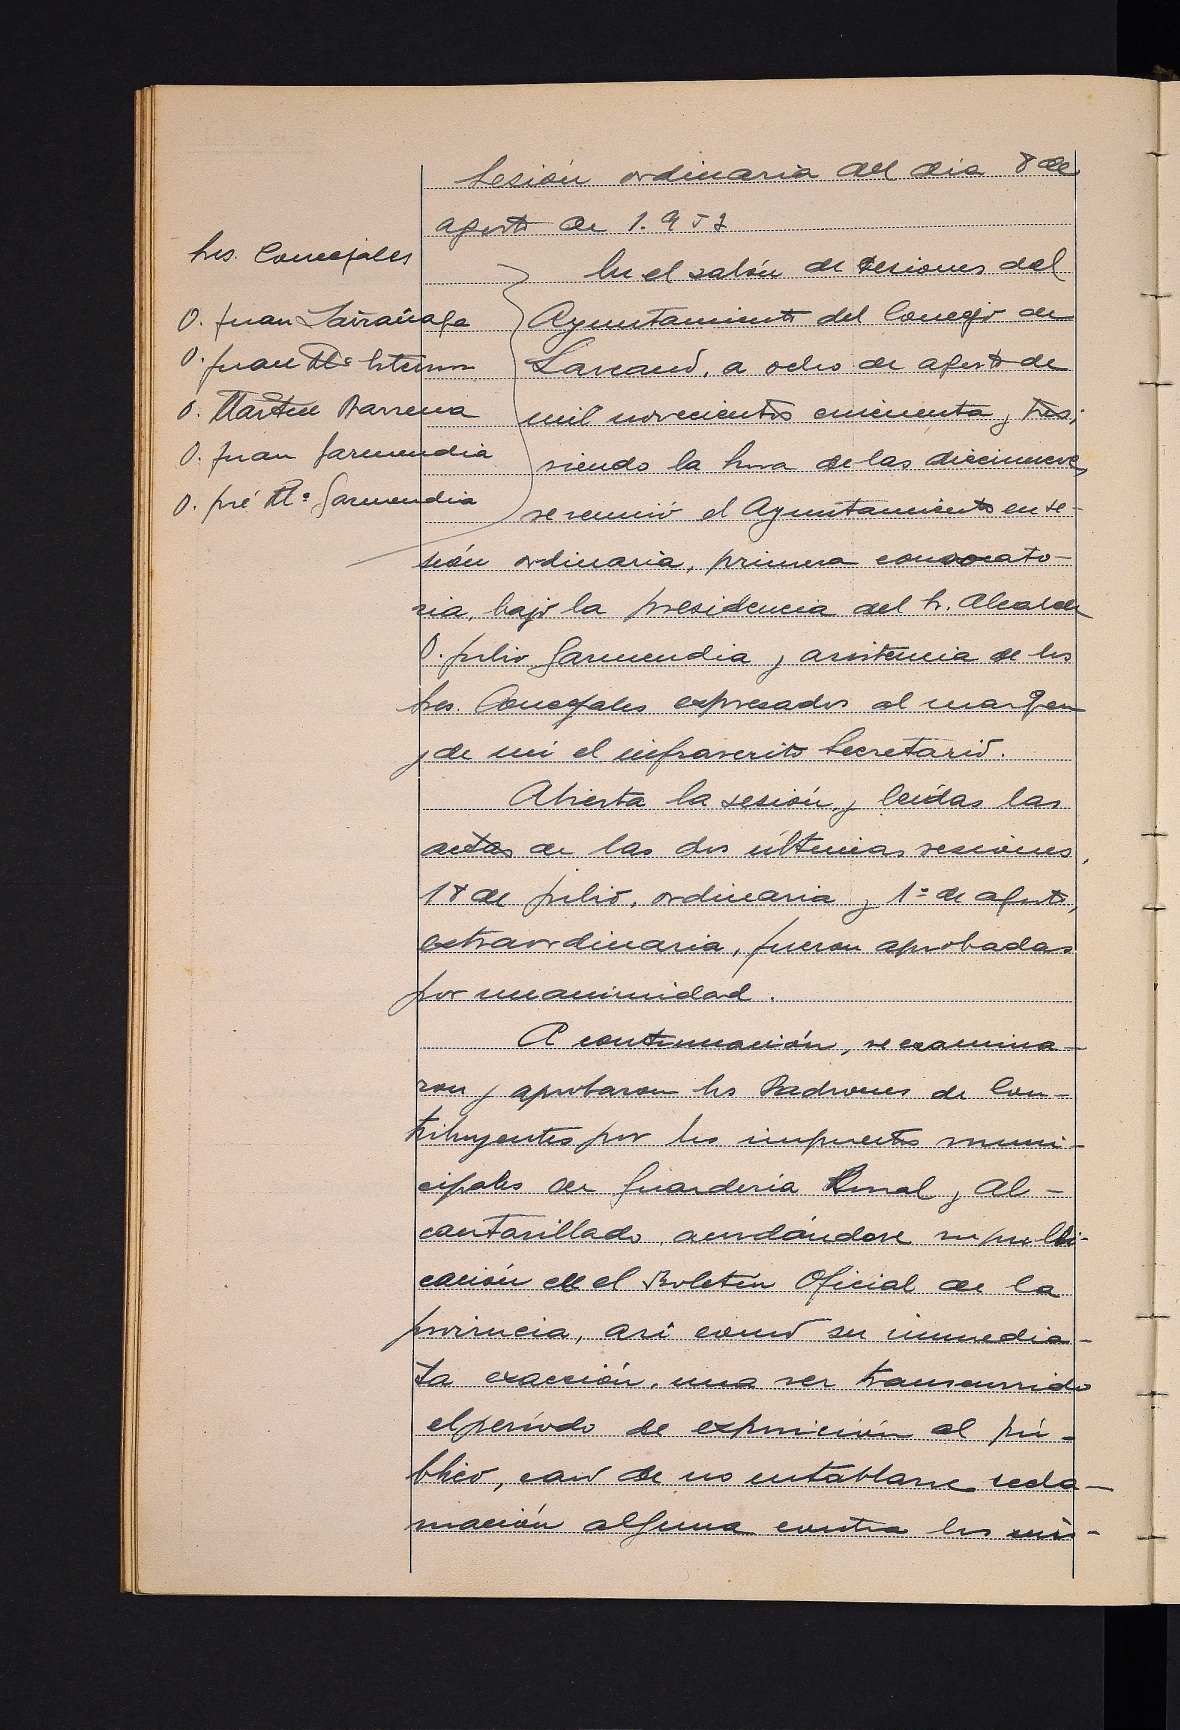 Sesión ordinaria del día 8 de
agosto de 1.953
Sres. Concejales
D. Juan Larrañaga
D. Juan Mª
D. Martin Barrena
D. Juan Garmendia
D. José Mª Garmendia
En el salón de sesiones del
Ayuntamiento del Concejo de
Larraul, a ocho de agosto de
mil novecientos cincuenta y tres;
siendo la hora de las diecinueve,
se reunió el Ayuntamiento en se-
sión ordinaria, primera convocato-
ria, bajo la presidencia del Sr. Alcalde
D. Julio Garmendia y asistencia de los
Sres. Concejales expresados al margen
y de mi el infrascrito Secretario.
Abierta la sesión, y leídas las
actas de las dos últimas sesiones,
18 de julio, ordinaria y 1º de agosto,
extraordinaria, fueron aprobadas
por unanimidad.
A continuación, se examina-
ron y aprobaron los Padrones de Con-
tribuyentes por los impuestos muni-
cipales de Guardería Rural y Al-
cantarillado, acordándose su publi-
cación en el Boletín Oficial de la
provincia, asi como su inmedia-
ta exacción, una vez transcurrido
el período de exposición al pú-
blico, caso de no entablarse recla-
mación alguna contra los mis-